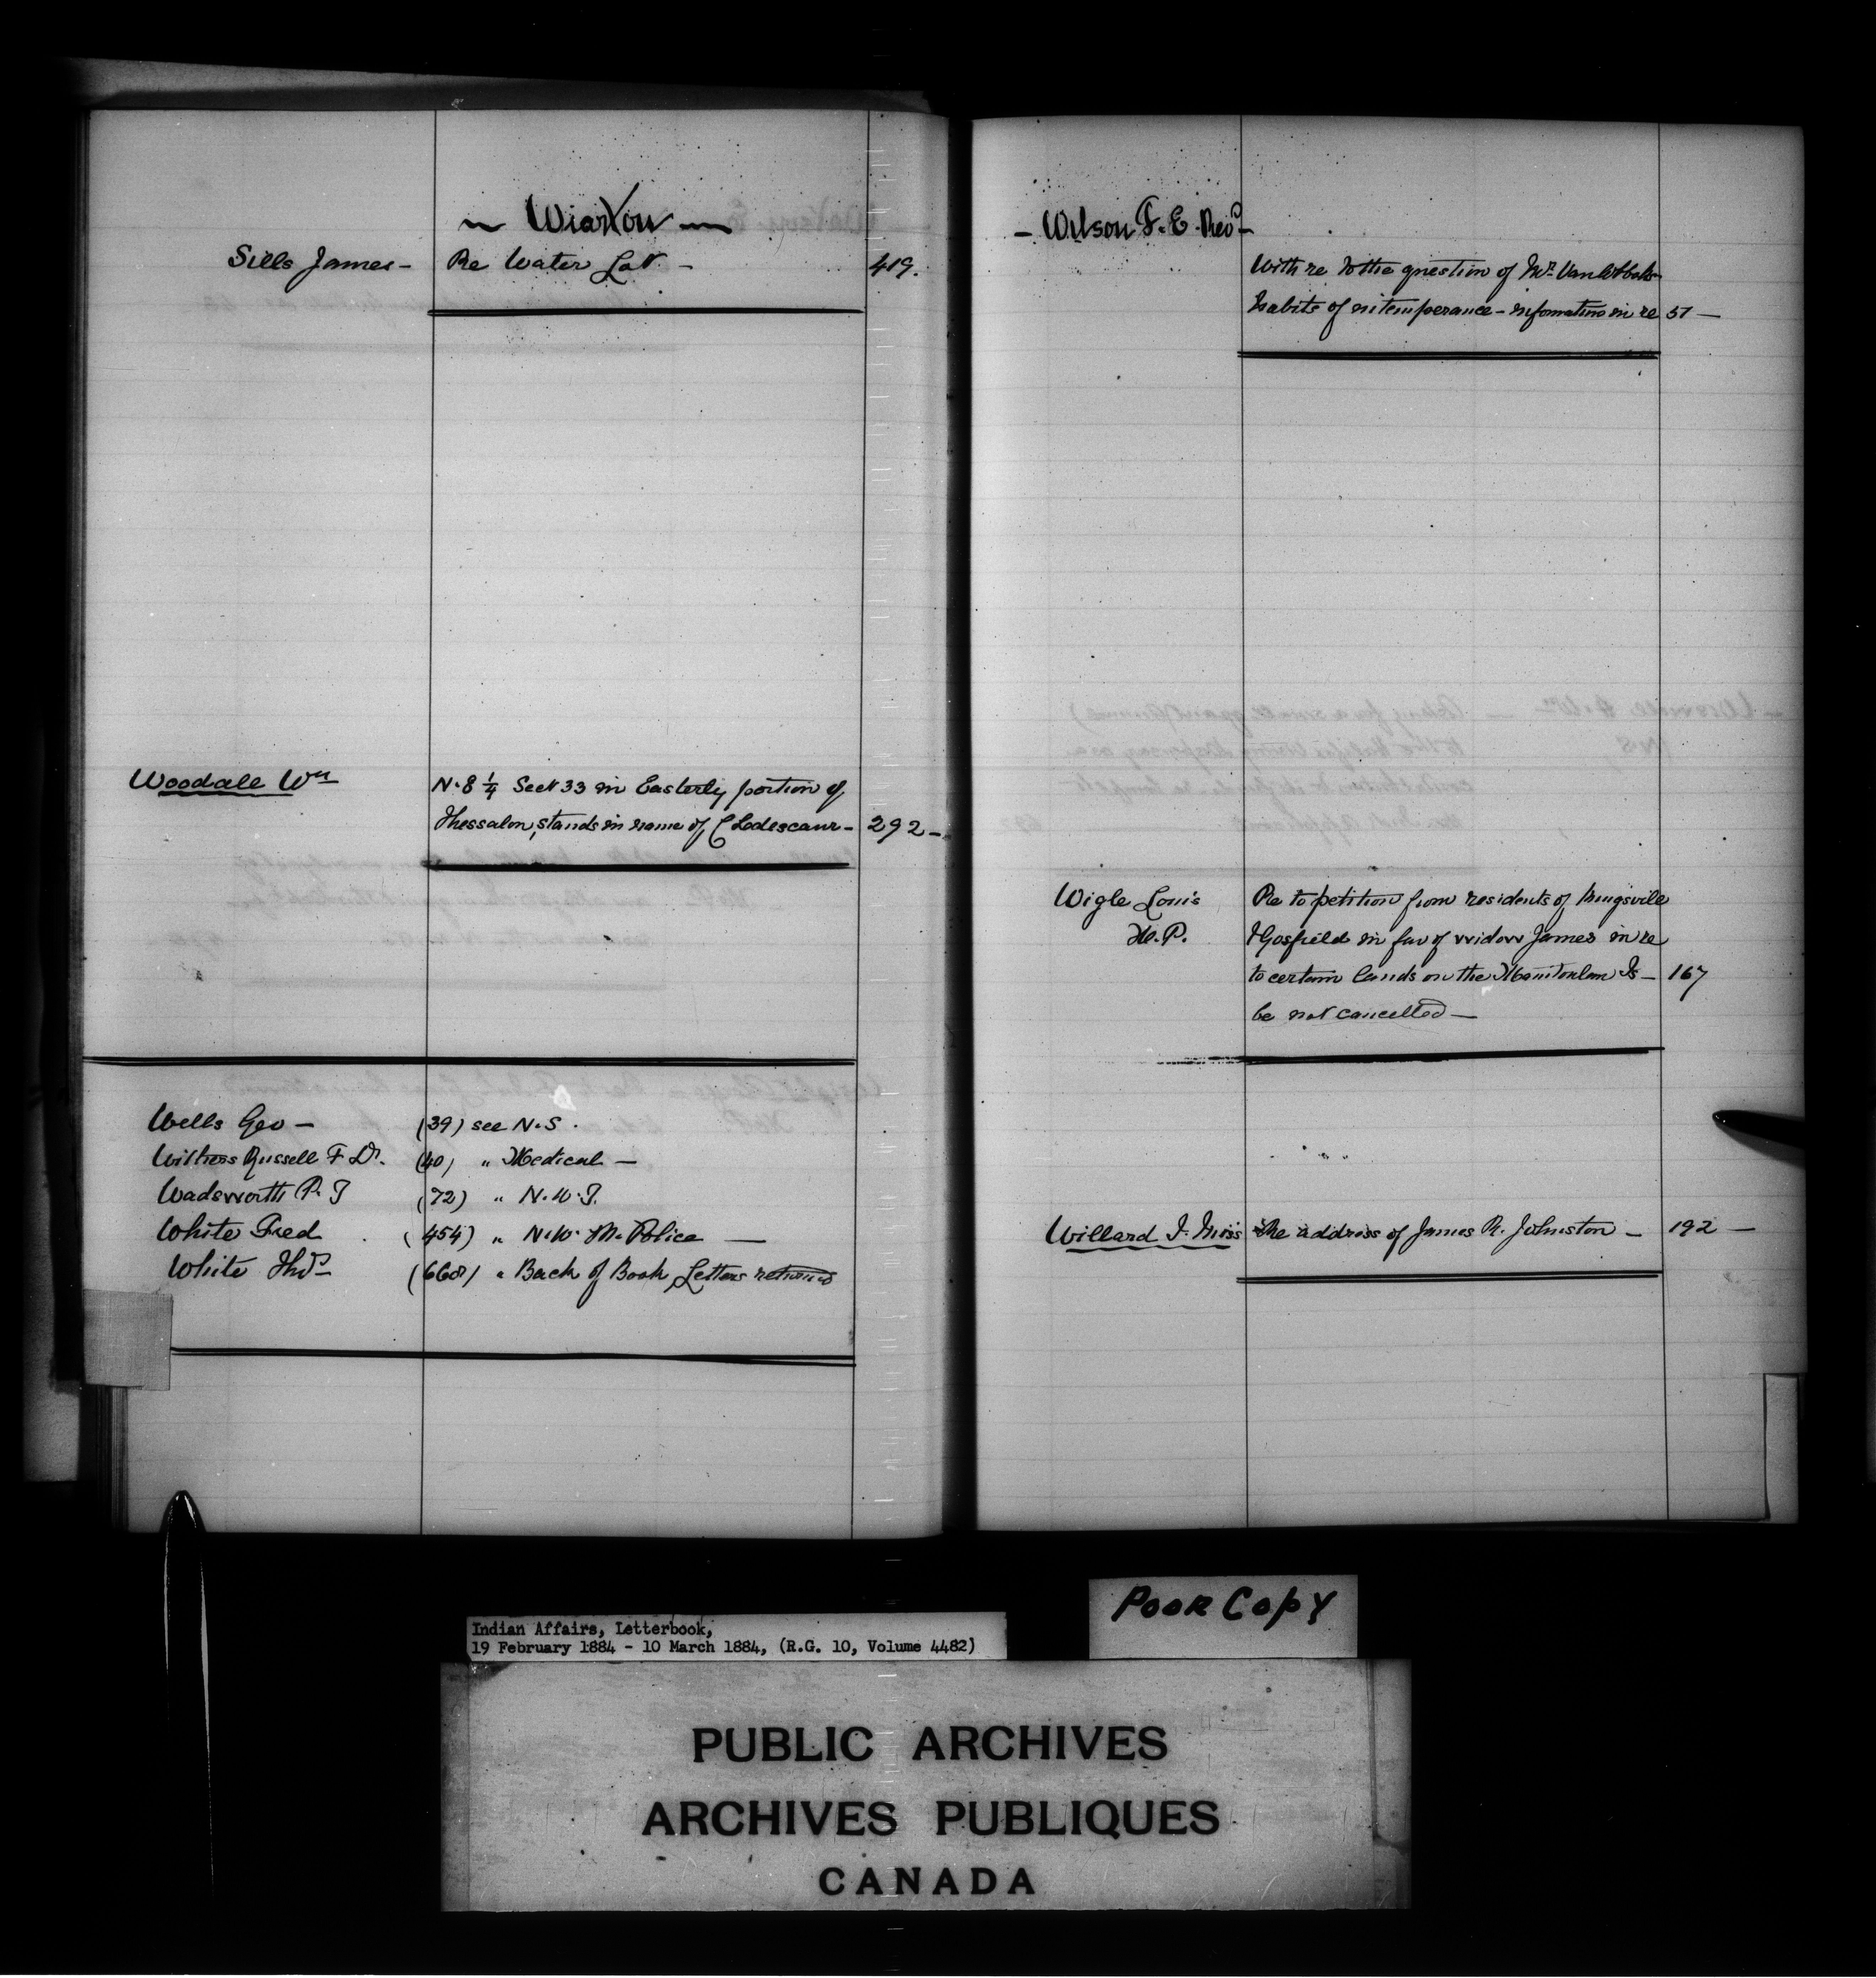 ~ Wiarton ~
Sills James - Re Water Lot - 419.
Woodale Wm N.E ¼ Sect 33 in Easterly portion of
Thessalon, stands in name of C 292 -
Wells Geo - (39) see N.S.
Withers Russell F Dr. (40) " Medical -
Wadsworth P. T (72) " N.W.T.
White Fred (454) " N.W. M. Police -
White Thos (668) " Back of Book Letters returned
- Wilson F. E. Revd -
With re to the question of Mr.
habits of intemperance - information in re 51 -
Wigle Louis Re to petition from residents of Kingsville
M.P. & Gosfield in fav of widow James in re
to certain lands on the Manitoulin Is - 167
be not cancelled -
Willard J. Miss Re address of James R. Johnston - 192 -
Poor Copy
Indian Affairs, Letterbook,
19 February 1884 - 10 March 1884, (R.G. 10, Volume 4482)
PUBLIC ARCHIVES
ARCHIVES PUBLIQUES
CANADA